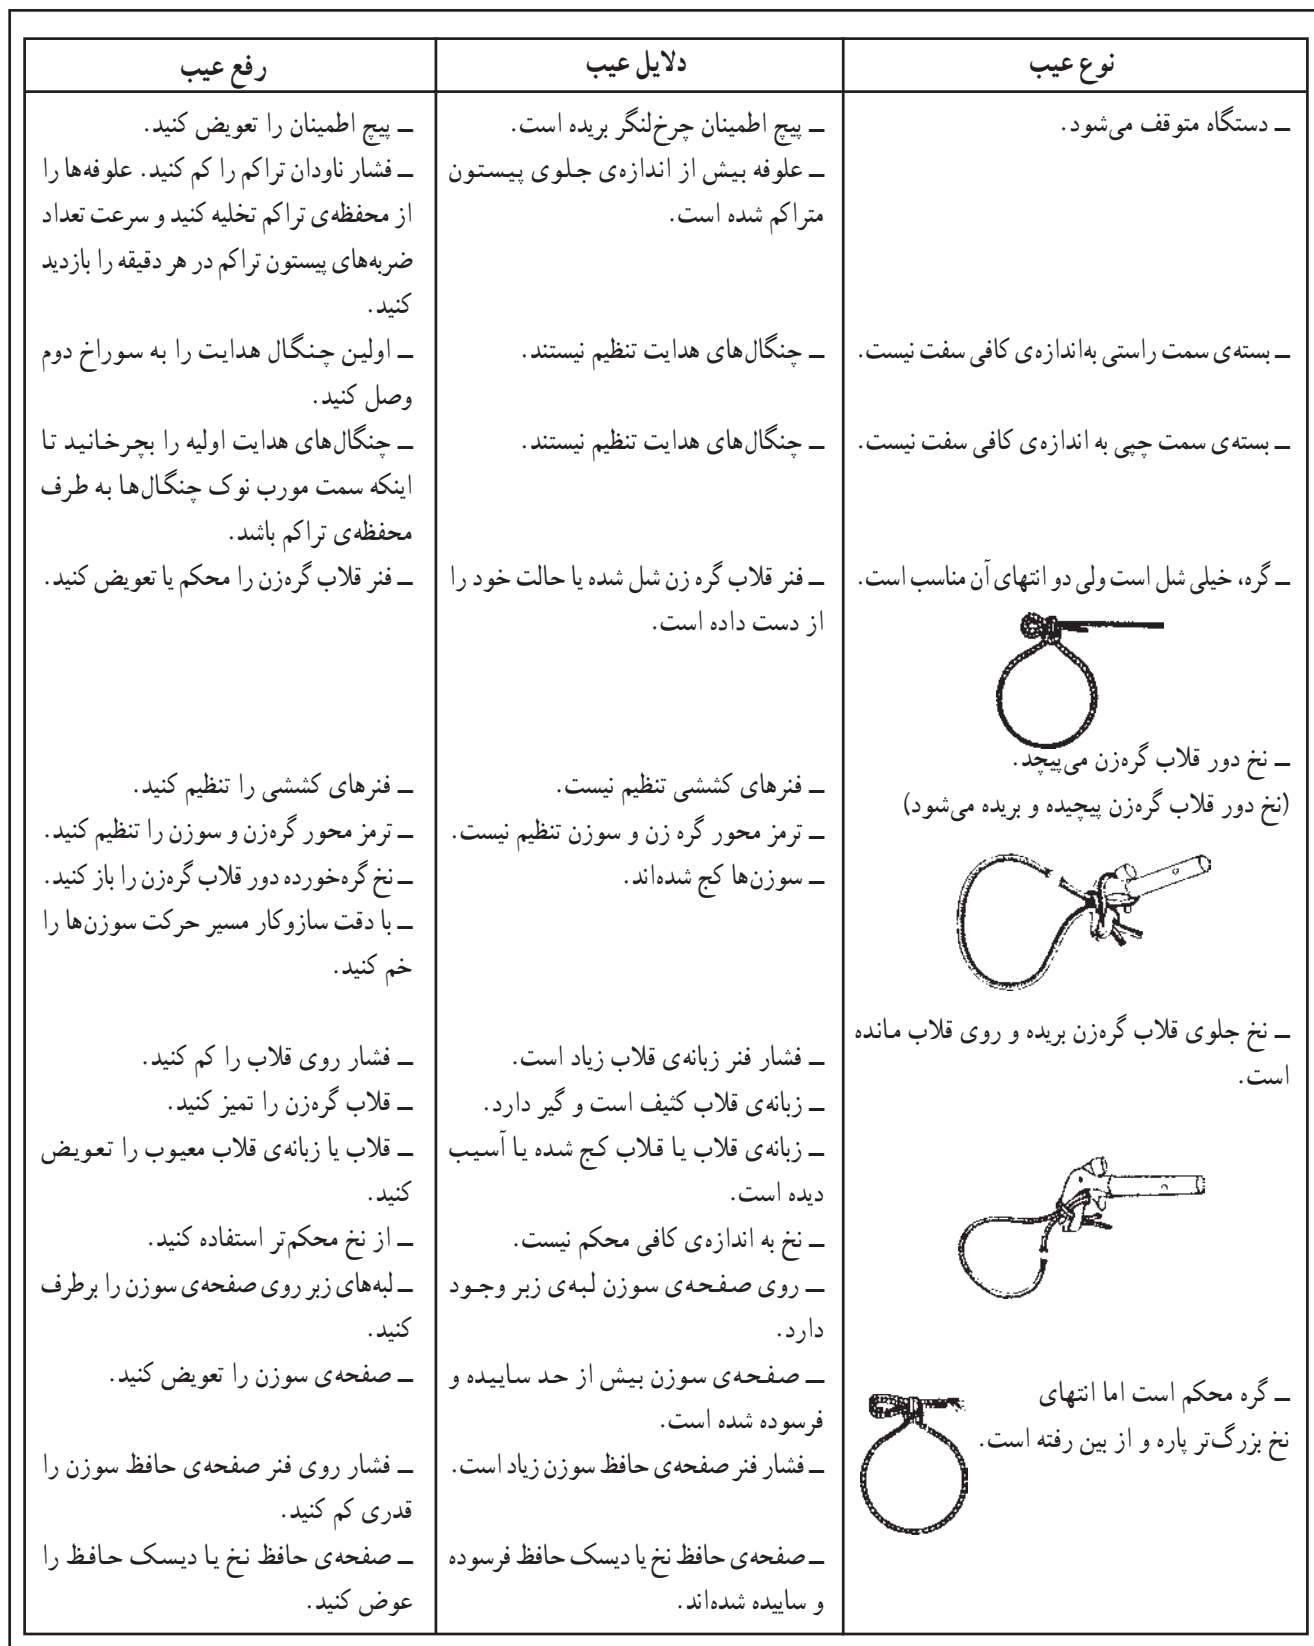 نوع عیب
دلایل عیب
رفع عیب
ــ دستگاه متوقف می‌شود.
ــ پیچ اطمینان چرخ‌لنگر بریده است.
ــ علوفه بیش از اندازه‌ی جلوی پیستون
متراکم شده است.
ــ پیچ اطمینان را تعویض کنید.
ــ فشار ناودان تراکم را کم کنید. علوفه‌ها را
از محفظه‌ی تراکم تخلیه کنید و سرعت تعداد
ضربه‌های پیستون تراکم در هر دقیقه را بازدید
کنید.
ــ بسته‌ی سمت راستی به‌اندازه‌ی کافی سفت نیست.
ــ چنگال‌های هدایت تنظیم نیستند.
ــ اولین چنگال هدایت را به سوراخ دوم
وصل کنید.
ــ بسته‌ی سمت چپی به اندازه‌ی کافی سفت نیست.
ــ چنگال‌های هدایت تنظیم نیستند.
ــ چنگال‌های هدایت اولیه را بچرخانید تا
اینکه سمت مورب نوک چنگال‌ها به طرف
محفظه‌ی تراکم باشد.
ــ گره، خیلی شل است ولی دو انتهای آن مناسب است.
ــ فنر قلاب گره زن شل شده یا حالت خود را
از دست داده است.
ــ فنر قلاب گره‌زن را محکم یا تعویض کنید.
ــ نخ دور قلاب گره‌زن می‌پیچد.
(نخ دور قلاب گره‌زن پیچیده و بریده می‌شود)
ــ فنرهای کششی تنظیم نیست.
ــ ترمز محور گره زن و سوزن تنظیم نیست.
ــ سوزن‌ها کج شده‌اند.
ــ فنرهای کششی را تنظیم کنید.
ــ ترمز محور گره‌زن و سوزن را تنظیم کنید.
ــ نخ گره‌خورده دور قلاب گره‌زن را باز کنید.
ــ با دقت سازوکار مسیر حرکت سوزن‌ها را
خم کنید.
ــ نخ جلوی قلاب گره‌زن بریده و روی قلاب مانده
است.
ــ فشار فنر زبانه‌ی قلاب زیاد است.
ــ زبانه‌ی قلاب کثیف است و گیر دارد.
ــ زبانه‌ی قلاب یا قلاب کج شده یا آسیب
دیده است.
ــ نخ به اندازه‌ی کافی محکم نیست.
ــ روی صفحه‌ی سوزن لبه‌ی زبر وجود
دارد.
ــ فشار روی قلاب را کم کنید.
ــ قلاب گره‌زن را تمیز کنید.
ــ قلاب یا زبانه‌ی قلاب معیوب را تعویض
کنید.
ــ از نخ محکم‌تر استفاده کنید.
ــ لبه‌های زبر روی صفحه‌ی سوزن را برطرف
کنید.
ــ گره محکم است اما انتهای
نخ بزرگ‌تر پاره و از بین رفته است.
ــ صفحه‌ی سوزن بیش از حد ساییده و
فرسوده شده است.
ــ فشار فنر صفحه‌ی حافظ سوزن زیاد است.
ــ صفحه‌ی حافظ نخ یا دیسک حافظ فرسوده
و ساییده شده‌اند.
ــ صفحه‌ی سوزن را تعویض کنید.
ــ فشار روی فنر صفحه‌ی حافظ سوزن را
قدری کم کنید.
ــ صفحه‌ی حافظ نخ یا دیسک حافظ را
عوض کنید.